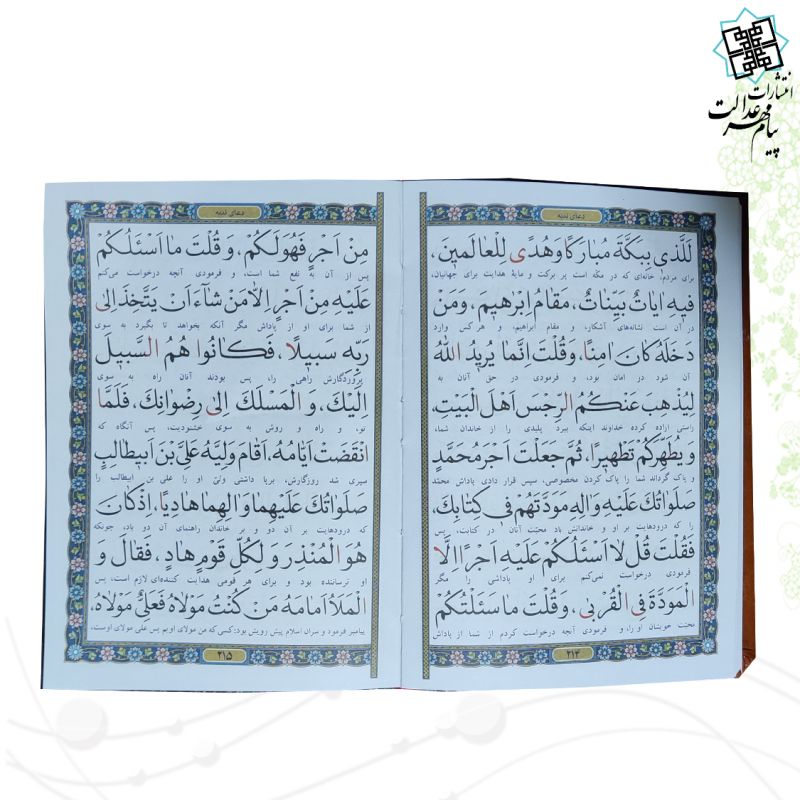 انتشارات
پیام مهر عدالت
دعای ندبه
لَلَّذی بِبَکَّةَ مُبارَکًا وَ هُدًی لِلْعالَمینَ،
برای مردم؛ خانه‌ای که در مکّه است پر برکت و مایهٔ هدایت برای جهانیان،
فیهِ ایاتٌ بَیِّناتٌ، مَقامُ اِبْرهیمَ، وَ مَنْ
در آن است نشانه‌های آشکار، و مقام ابراهیم، و هر کس وارد
دَخَلَهُ کانَ امِنًا، وَ قُلْتَ اِنَّما یُریدُ اللهُ
آن شود در امان بود، و فرمودی در حق آنان به
لِیُذْهِبَ عَنْکُمُ الرِّجْسَ اَهْلَ الْبَیْتِ،
راستی اراده کرده خداوند اینکه ببرد پلیدی را از خاندان شما،
وَ یُطَهِّرَکُمْ تَطْهیرًا، ثُمَّ جَعَلْتَ اَجْرَ مُحَمَّدٍ
و پاک گرداند شما را پاک کردن مخصوصی، سپس قرار دادی پاداش محمّد
صَلَواتُکَ عَلَیْهِ وَ الِهِ مَوَدَّتَهُمْ فی کِتابِکَ،
را که درودهایت بر او و خاندانش باد محبّت آنان در کتابت، پس
فَقُلْتَ قُلْ لا اَسْئَلُکُمْ عَلَیْهِ اَجْرًا اِلَّا
فرمودی درخواست نمی‌کنم برای او پاداشی را مگر
الْمَوَدَّةَ فِی الْقُرْبی، وَ قُلْتَ ما سَئَلْتُکُمْ
محبّت خویشان او را، و فرمودی آنچه درخواست کردم از شما از پاداش
۲۱۴
دعای ندبه
مِنْ اَجْرٍ فَهُوَ لَکُمْ، وَ قُلْتَ ما اَسْئَلُکُمْ
پس از آن به نفع شما است، و فرمودی آنچه درخواست می‌کنم
عَلَیْهِ مِنْ اَجْرٍ اِلّا مَنْ شآءَ اَنْ یَتَّخِذَ اِلی
از شما برای او از پاداش مگر آنکه بخواهد تا بگیرد به سوی
رَبِّهِ سَبیلًا، فَکانُوا هُمُ السَّبیلَ
پروردگارش راهی را، پس بودند آنان راه به سوی
اِلَیْکَ، وَ الْمَسْلَکَ اِلی رِضْوانِکَ، فَلَمَّا
تو، و راه و روش به سوی خشنودیت، پس آنگاه که
انْقَضَتْ اَیّامُهُ، اَقامَ وَلِیَّهُ عَلِیَّ بْنَ اَبیطالِبٍ
سپری شد روزگارش، برپا داشتی ولیّ او را علی بن ابیطالب را
صَلَواتُکَ عَلَیْهِما وَ الِهِما هادِیًا، اِذْ کانَ
که درودهایت بر آن دو و بر خاندان راهنمای آن دو باد، چونکه
هُوَ الْمُنْذِرَ وَ لِکُلِّ قَوْمٍ هادٍ، فَقالَ وَ
او ترساننده بود و برای هر قومی هدایت کننده‌ای لازم است، پس
الْمَلَأُ اَمامَهُ مَنْ کُنْتُ مَوْلاهُ فَعَلِیٌّ مَوْلاهُ،
پیامبر فرمود و سران اسلام پیش رویش بود: کسی که من مولای اویم پس علی مولای اوست،
۲۱۵